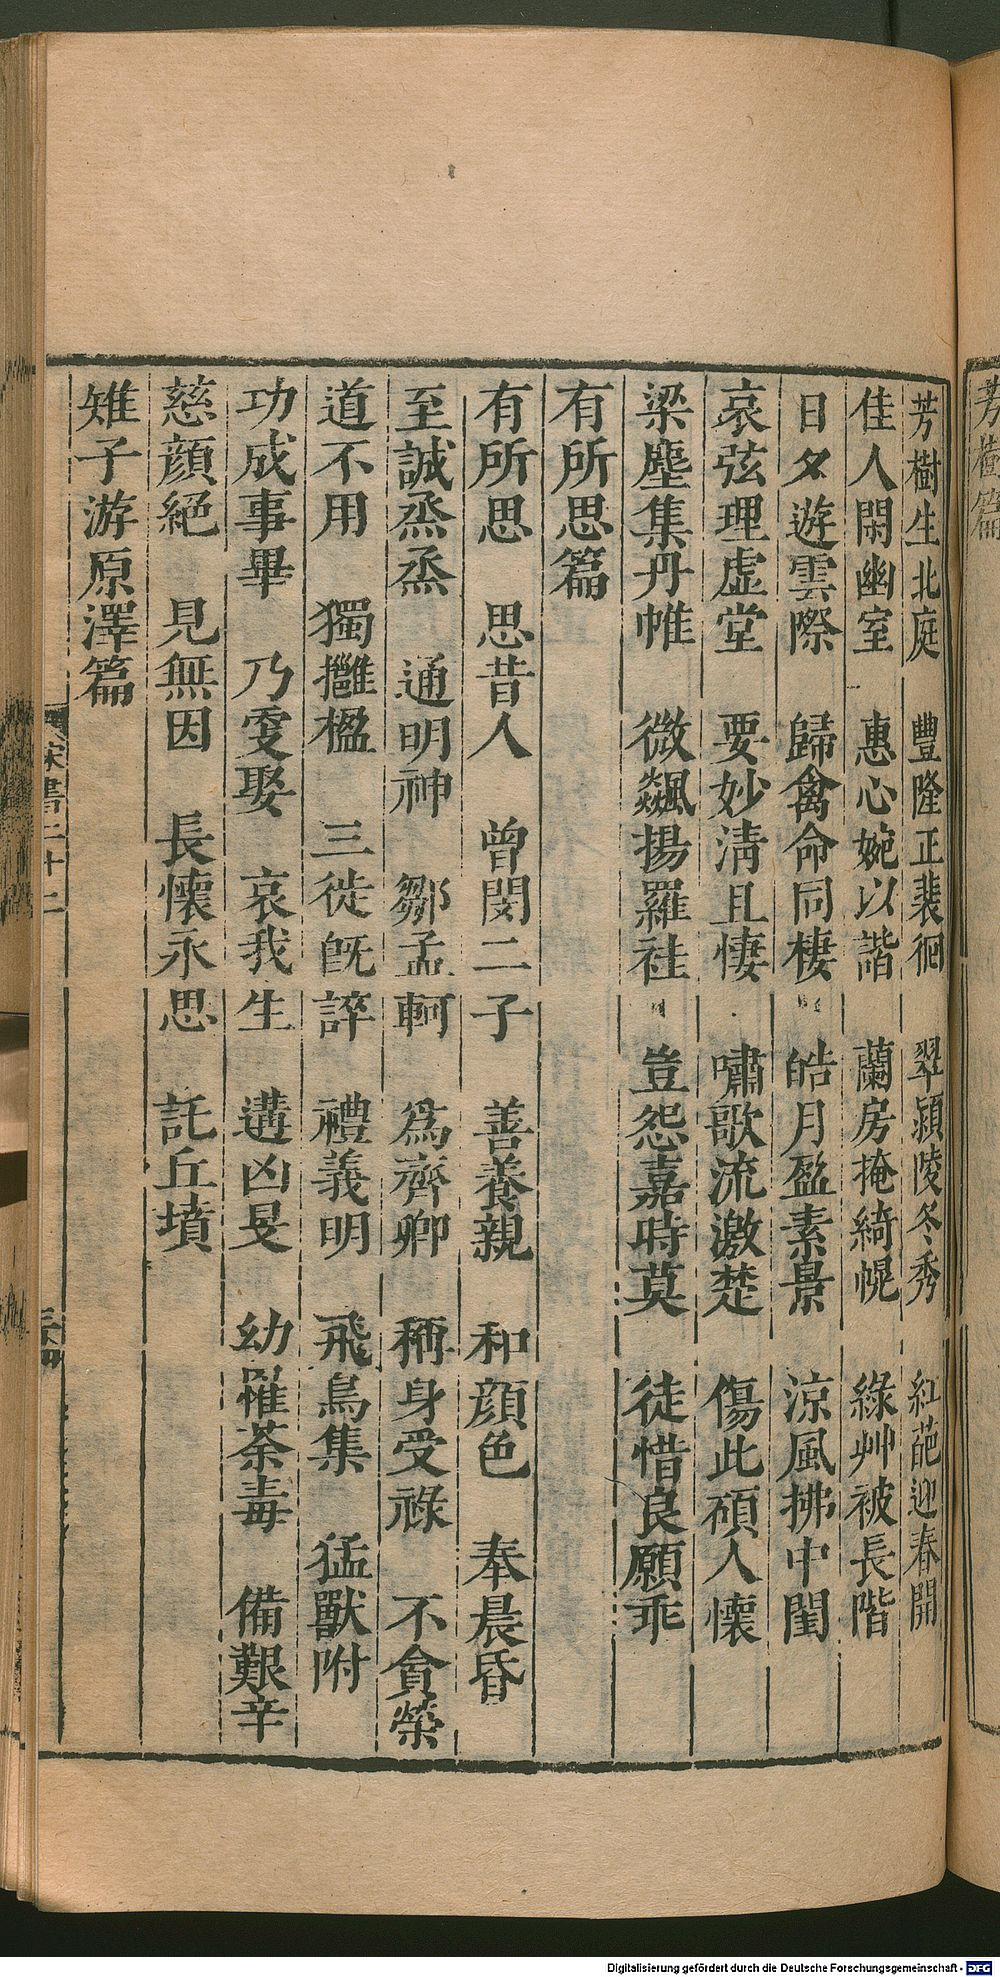 芳樹篇
芳樹生北庭 豐隆正裴徊 翠潁陵冬秀 紅葩迎春開
佳人閑幽室 惠心婉以諧 蘭房掩綺幌 綠艸被長階
日夕遊雲際 歸禽命同棲 皓月盈素景 涼風拂中閨
哀弦理虛堂 要妙淸且悽 嘯歌流激楚 傷此碩人懷
梁塵集丹帷 微飇揚羅袿 豈怨嘉時莫 徒惜良願乖
有所思篇
有所思 思昔人 曾閔二子善養親 和顔色 奉晨昏
至誠烝烝 通明神 鄒孟軻 爲齊卿 稱身受祿 不貪榮
道不用 獨擁楹 三徙旣誶 禮義明 飛鳥集 猛獸附
功成事畢 乃更娶 哀我生 遘凶旻 幼罹荼毒 備艱辛
慈顔絕 見無因 長懷永思 託丘墳
雉子游原澤篇
宋書二十二
Digitalisierung gefördert durch die Deutsche Forschungsgemeinschaft - DFG